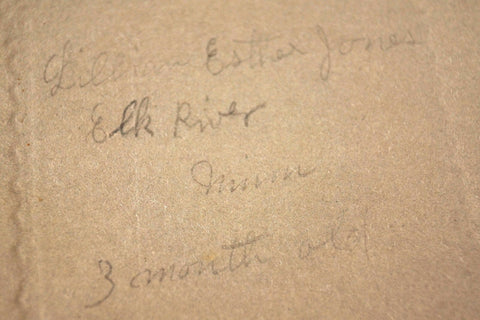 Lillian Esther Jones
Elk River
Minn
3 month old